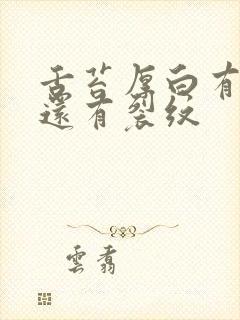 舌苔厚白有
還有裂紋
雲翥